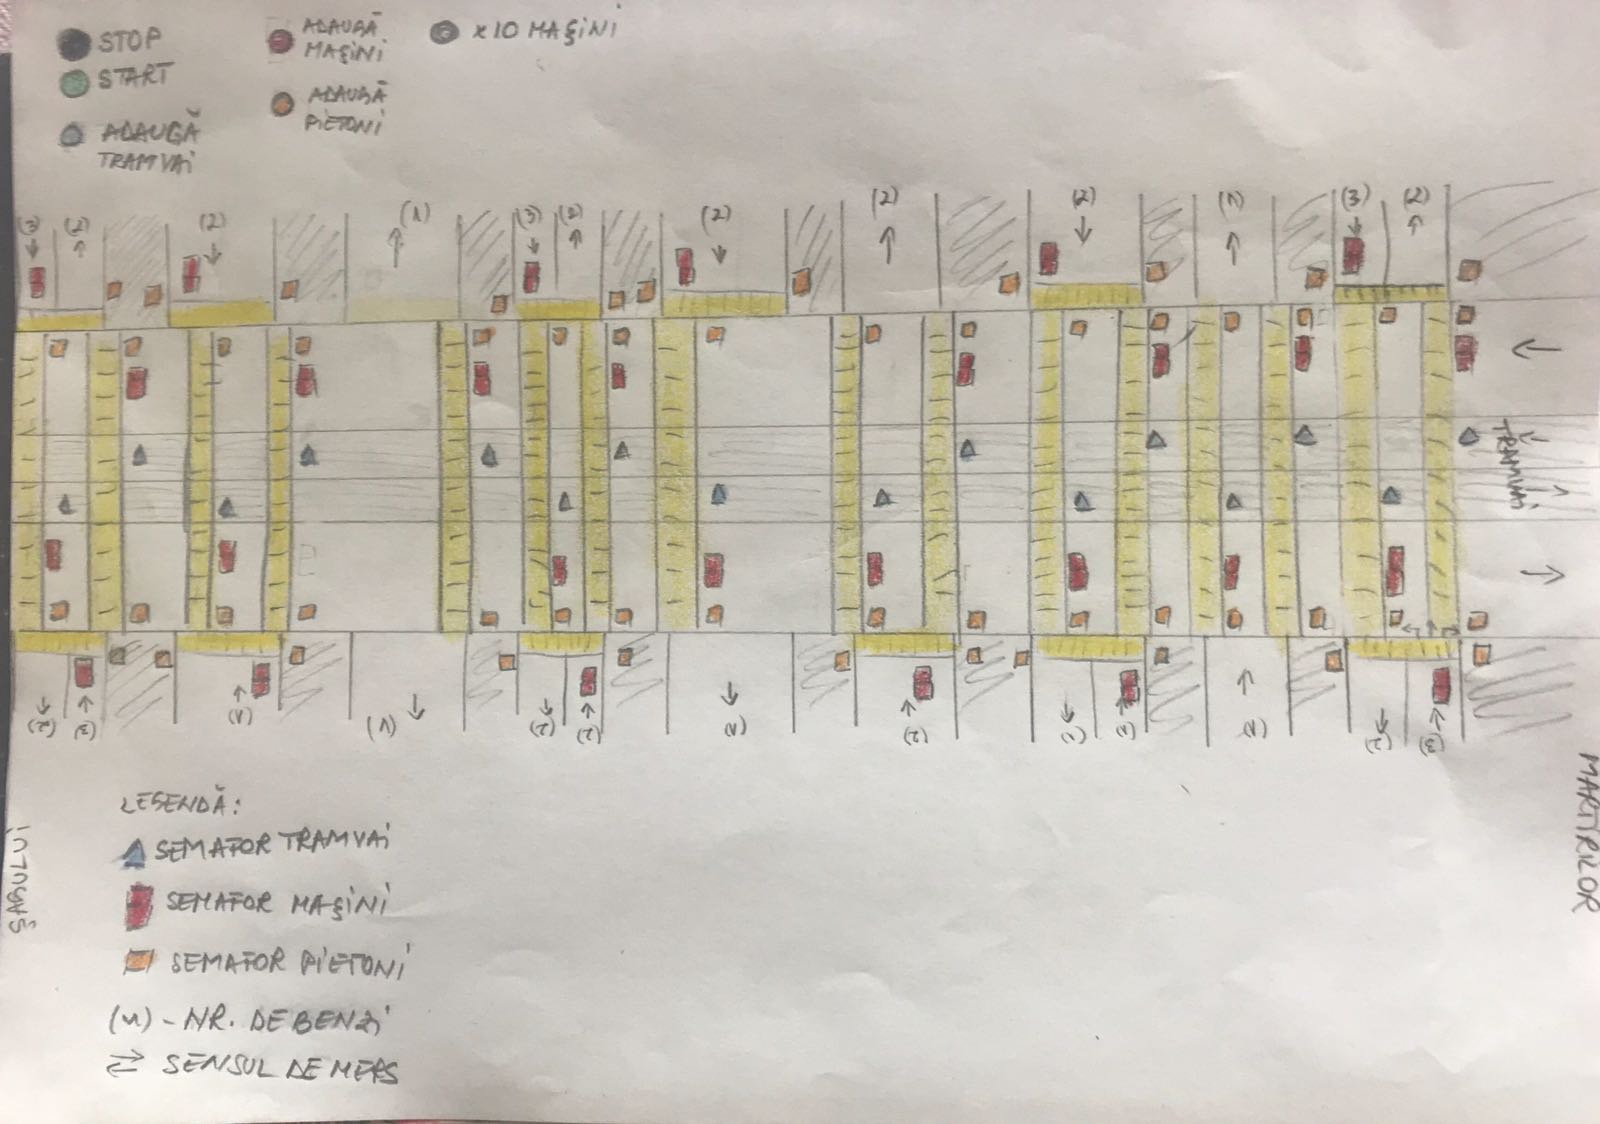 STOP
START
ADAUGĂ
TRAMVAI
ADAUGĂ
MAȘINI
ADAUGĂ
PIETONI
x10 MAȘINI
(3) (2) (2) (1) (3) (2) (2) (2) (2) (1) (3) (2)
TRAMVAI
(2) (3) (1) (1) (2) (2) (2) (1) (2) (3)
ȘAGULUI
MARTIRILOR
LEGENDĂ:
SEMAFOR TRAMVAI
SEMAFOR MAȘINI
SEMAFOR PIETONI
(n) - NR. DE BENZI
⇄ SENSUL DE MERS